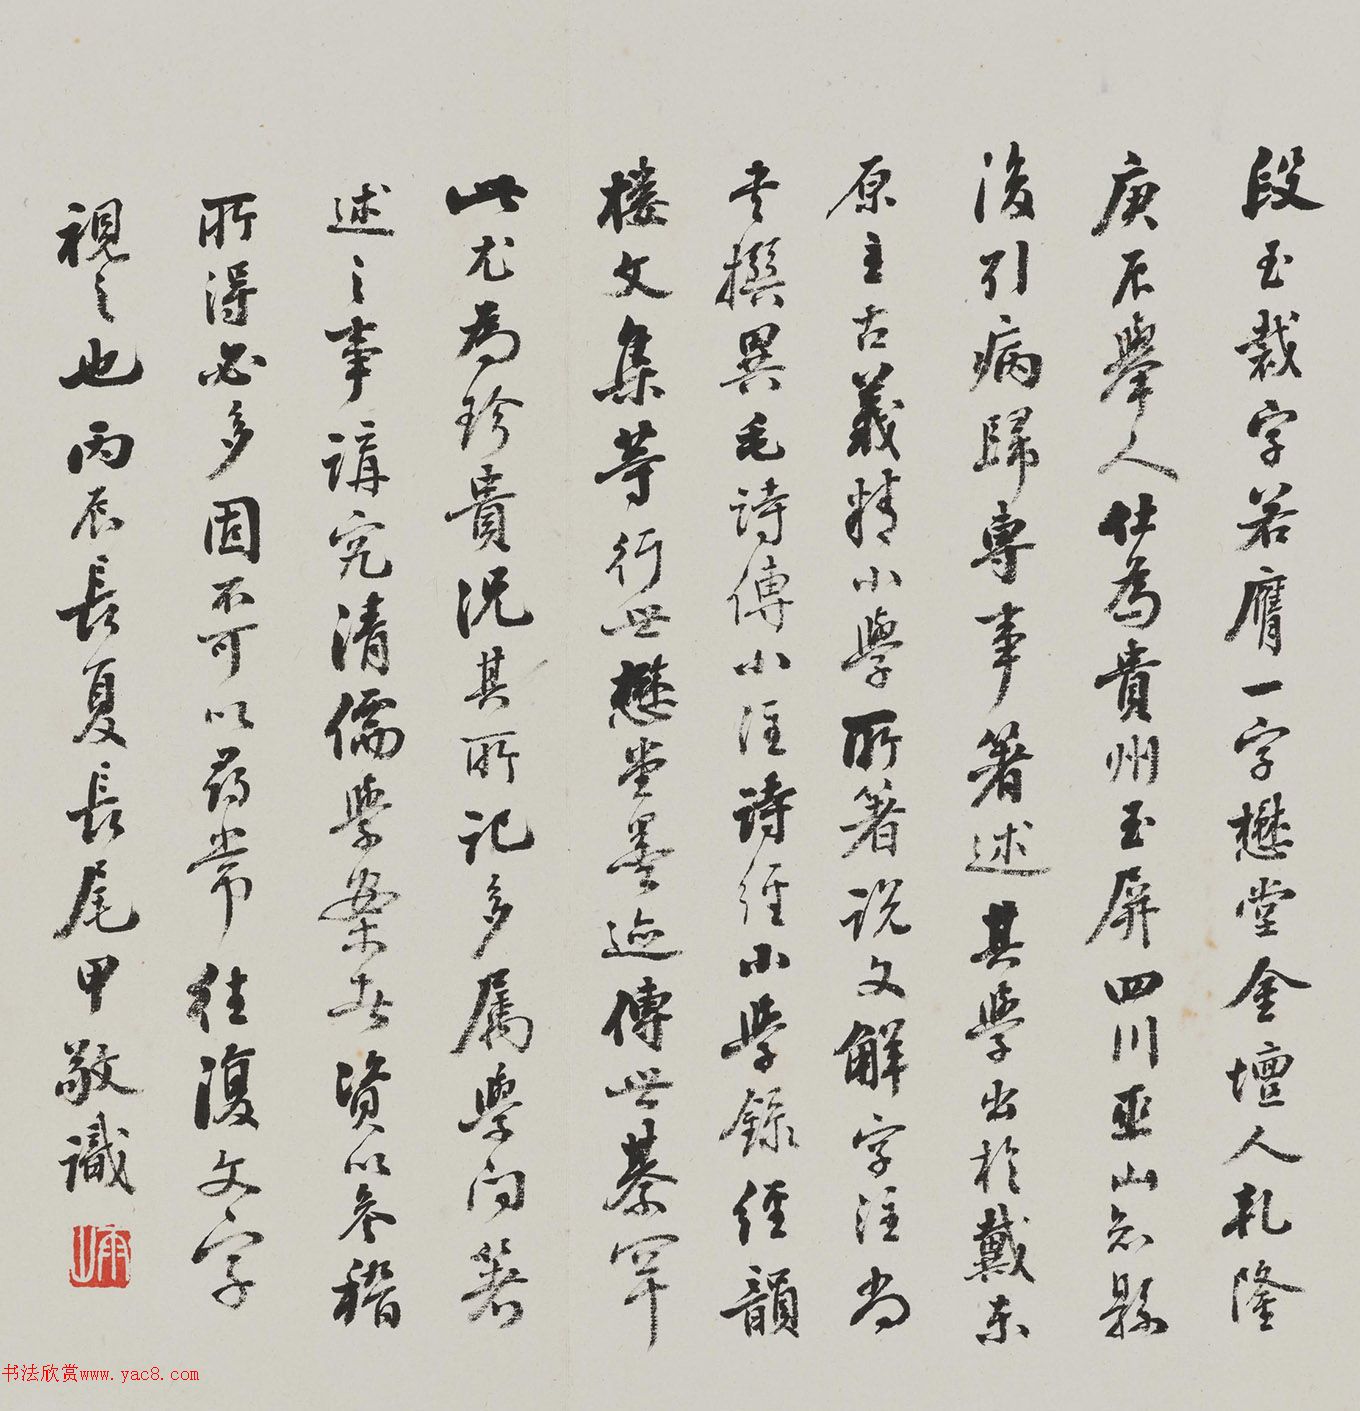 段玉裁字若膺一字懋堂金壇人乳隆
庚辰舉人仕為貴州玉屏四川巫山知縣
後引病歸專事著述其學出於戴東
原主古義精小學所著說文解字注尚
書撰異毛詩傳小注詩經小學錄經韻
樓文集等行世懋堂墨迹傳世綦罕
此尤為珍貴況其所記多屬學問著
述之事講究清儒學案者資以參稽
所得必多固不可以尋常往復文字
視之也丙辰長夏長尾甲敬識
书法欣赏www.yac8.com